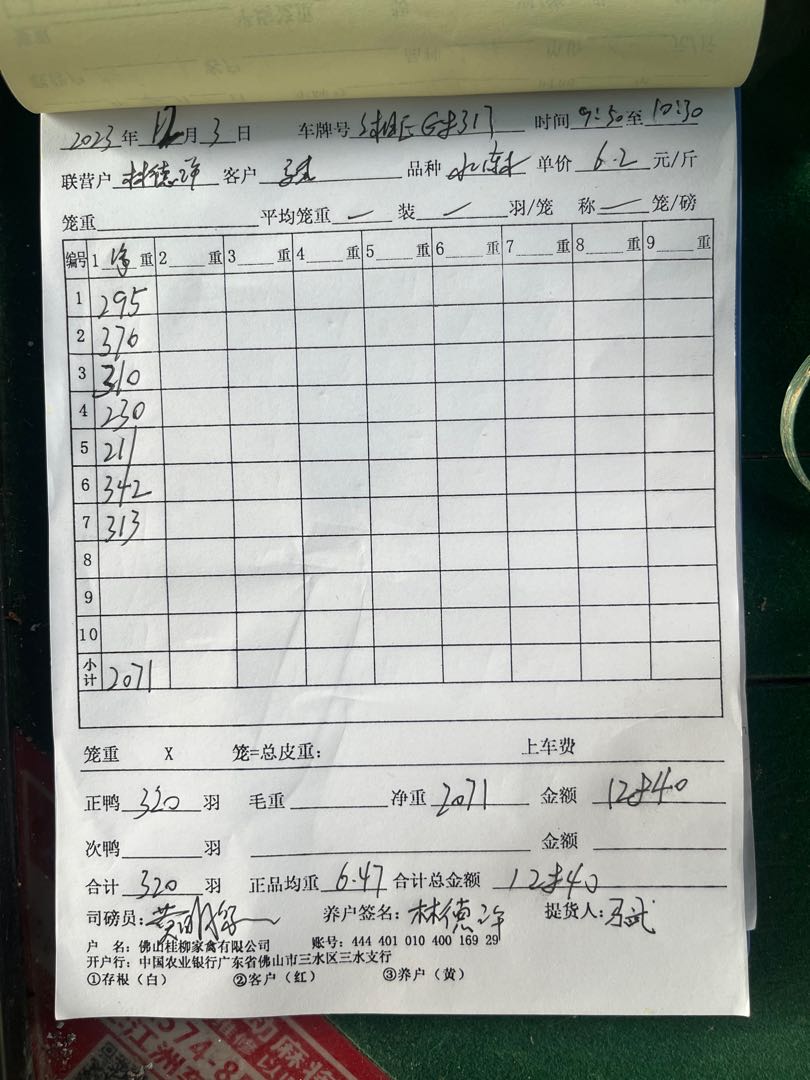 2023 年 12 月 3 日 车牌号 时间 9:30 至 10:30
联营户 林德洋 客户 品种 单价 6.2 元/斤
笼重 平均笼重 装 羽/笼 称 笼/磅
编号 1 净 重 2 重 3 重 4 重 5 重 6 重 7 重 8 重 9 重
1 295
2 370
3 310
4 230
5 211
6 342
7 313
8
9
10
小计 2071
笼重 X 笼=总皮重: 上车费
正鸭 320 羽 毛重 净重 2071 金额 12840
次鸭 羽 金额
合计 320 羽 正品均重 6.47 合计总金额 12840
司磅员: 养户签名: 林德洋 提货人:
户 名: 佛山桂柳家禽有限公司 账号: 444 401 010 400 169 29
开户行: 中国农业银行广东省佛山市三水区三水支行
①存根(白) ②客户(红) ③养户(黄)